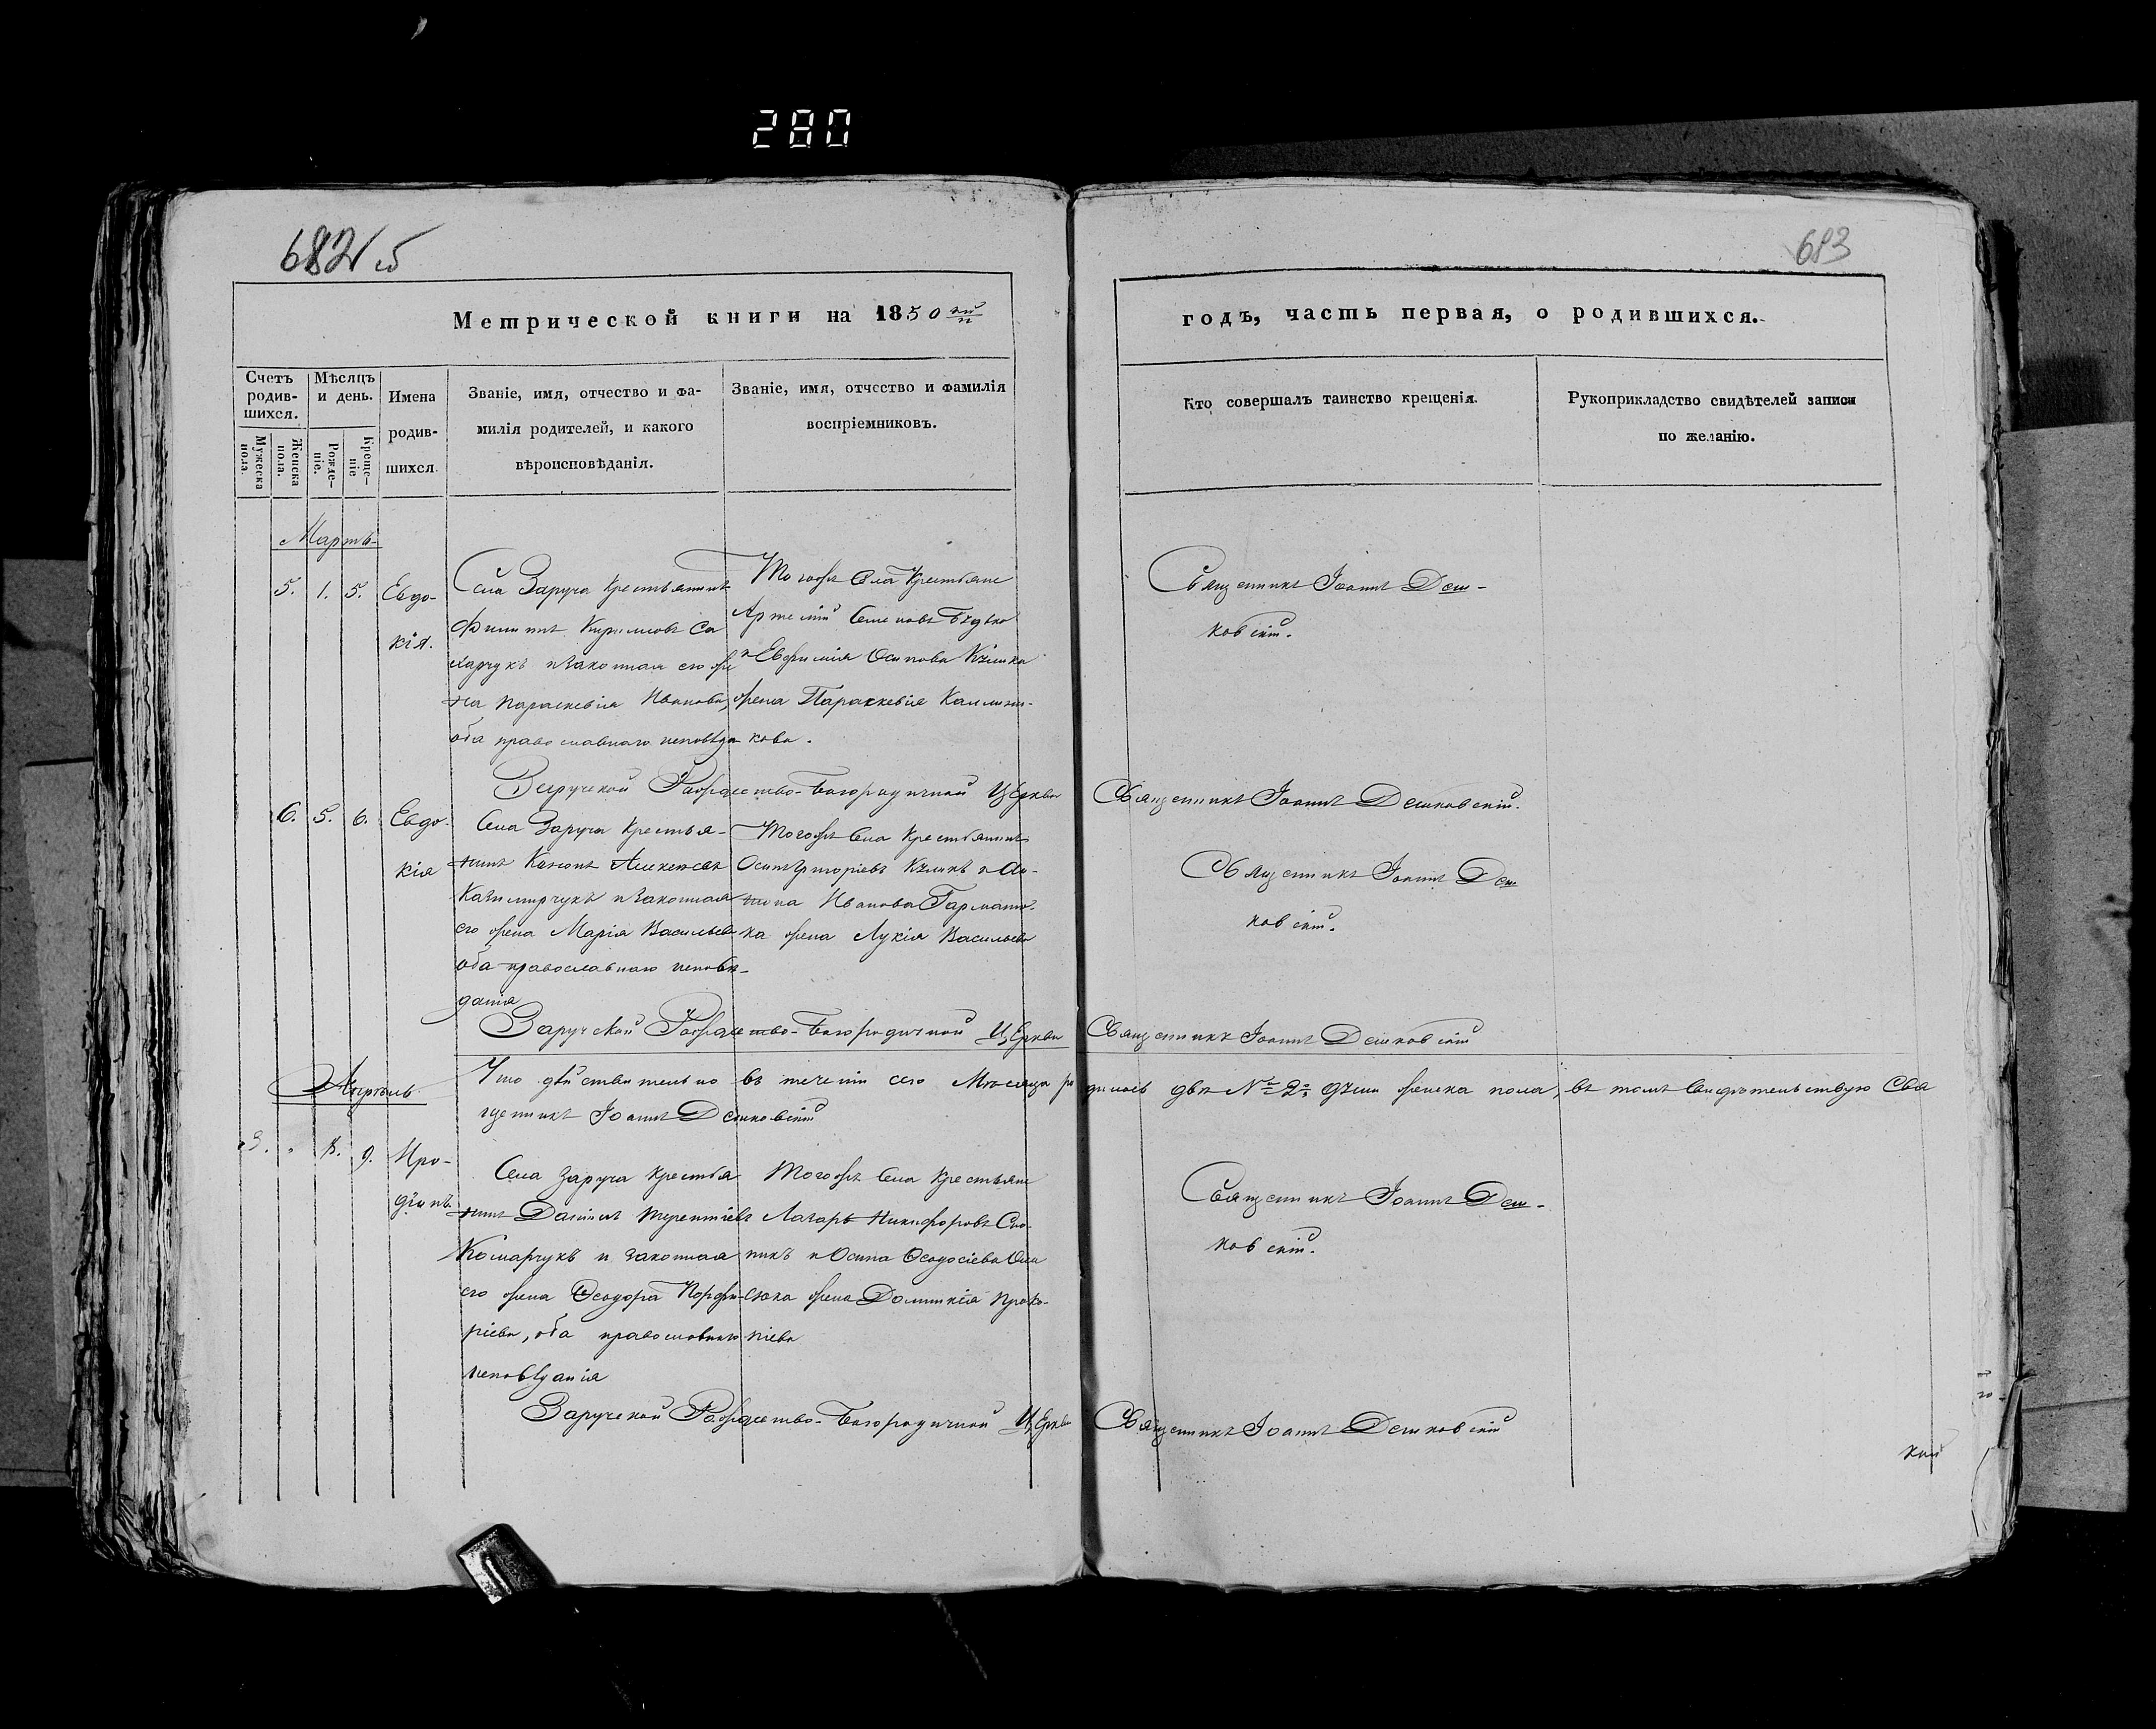 280
682 об
683
Метрической книги на 1850 ый
годъ, часть первая, о родившихся.
Счетъ родив-
шихся.
Мужеска пола.
Женска пола.
Мѣсяцъ
и день.
Рожде-
ніе.
Креще-
ніе
Имена
родив-
шихся.
Званіе, имя, отчество и фа-
милія родителей, и какого
вѣроисповѣданія.
Званіе, имя, отчество и фамилія
воспріемниковъ.
Кто совершалъ таинство крещенія.
Рукоприкладство свидѣтелей записи
по желанію.
Мартъ
5. 1. 5. Евдо-
кія.
Села Заруча Крестьянинъ
Филиппъ Кирилловъ Са
харчукъ и законная его же
на Параскевія Иванова,
оба православнаго исповѣда
Тогожъ Села Крестьяне
Артемій Семеновъ
и Евфимія Осипова Клика
жена Параскевія
кова.
Священникъ Іоаннъ Деш-
ковскій.
Заручской Рождество-Богородичной Церкви Священникъ Іоаннъ Дешковскій.
6. 5. 6. Евдо-
кія
Села Заруча Крестья-
нинъ Алексѣевъ
Казимирчукъ и законная
его жена Марія Васильева
оба православнаго исповѣ-
данія
Тогожъ Села Крестьянинъ
Осипъ Григоріевъ Кликъ и Ан-
тона Иванова Гармато-
ка жена Лукія Васильева
Священникъ Іоаннъ Деш
ковскій.
Заручской Рождество-Богородичной Церкви Священникъ Іоаннъ Дешковскій
Что дѣйствительно въ теченіи сего Мѣсяца родилось двѣ № 2: души женска пола, въ томъ свидѣтельствую Свя
щенникъ Іоаннъ Дешковскій
Апрѣль.
3. „ 8. 9. Иро-
діонъ.
Села Заруча Крестья
нинъ Даніилъ Терентіевъ
Комарчукъ и законная
его жена Ѳеодора Порфи-
ріева, оба православнаго
исповѣданія
Тогожъ Села Крестьяне
Лазаръ Никифоровъ
никъ и Осипа Ѳеодосіева
сюка жена Домникія Проко-
піева
Священникъ Іоаннъ Деш-
ковскій.
Заручской Рождество-Богородичной Церкви Священникъ Іоаннъ Дешковскій
кій